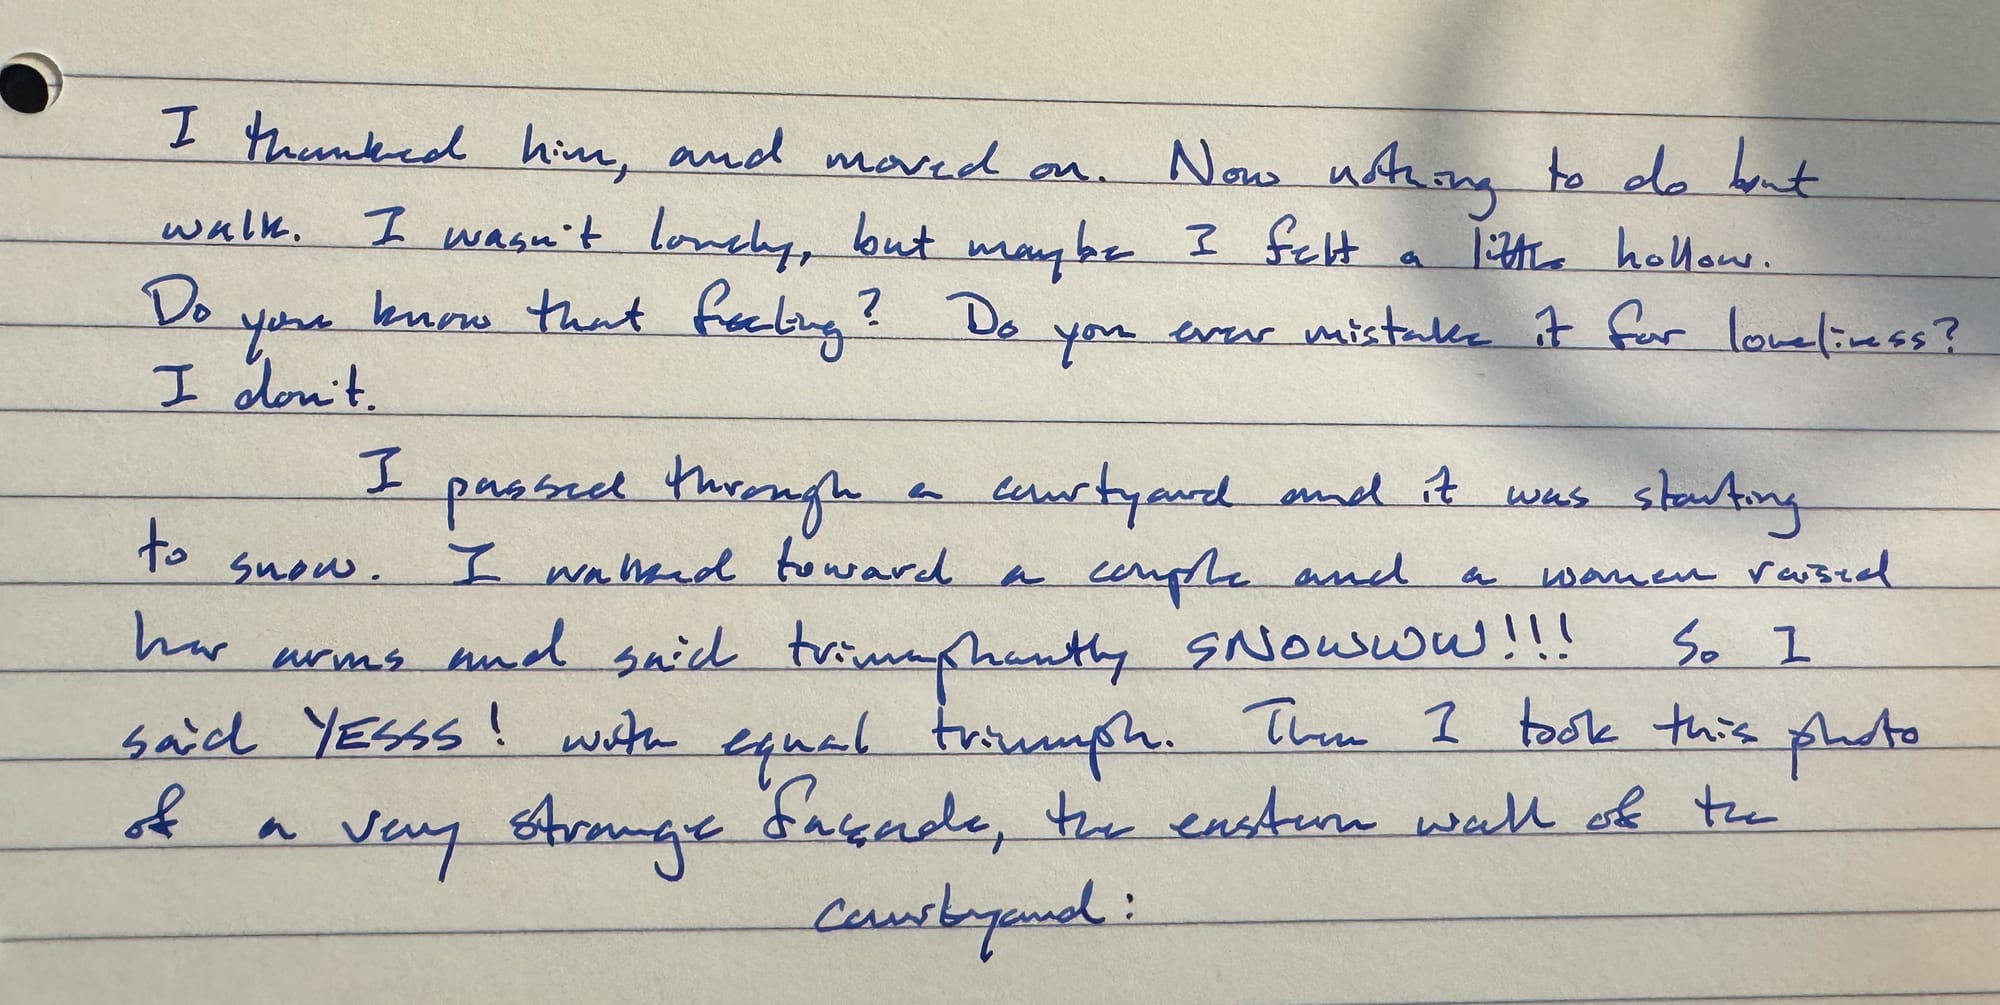 I thanked him, and moved on. Now nothing to do but
walk. I wasn't lonely, but maybe I felt a little hollow.
Do you know that feeling? Do you ever mistake it for loneliness?
I don't.
I passed through a courtyard and it was starting
to snow. I walked toward a couple and a woman raised
her arms and said triumphantly SNOWWW!!! So I
said YESSS! with equal triumph. Then I took this photo
of a very strange façade, the eastern wall of the
courtyard: